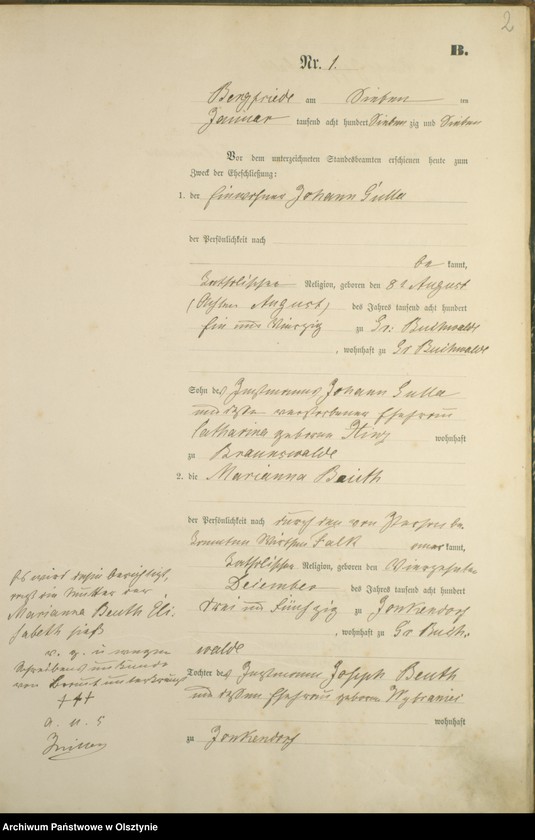 2
B.
Nr. 1.
Bergfriede am Sieben ten
Januar tausend acht hundert Sieben zig und Sieben
Vor dem unterzeichneten Standesbeamten erschienen heute zum
Zweck der Eheschließung:
1. der Einwohner Johann Gulla
der Persönlichkeit nach
be kannt,
katholischer Religion, geboren den 8t August
(Achten August) des Jahres tausend acht hundert
Ein und Vierzig zu Gr. Buchwalde
, wohnhaft zu Gr Buchwalde
Sohn des Instmanns Johann Gulla
und dessen verstorbener Ehefrau
Catharina geborene wohnhaft
zu Braunswalde
2. die Marianna Beuth
der Persönlichkeit nach durch den von Person be
kannten Wirthen Falk kannt,
katholischer Religion, geboren den Vierzehnten
Dezember des Jahres tausend acht hundert
drei und fünfzig zu Jonkendorf
, wohnhaft zu Gr Buch-
walde
Tochter des Instmanns Joseph Beuth
und dessen Ehefrau geborene Wybranietz
wohnhaft
zu Jonkendorf
Es wird dahin berichtigt,
daß die Mutter der
Marianna Beuth Eli-
sabeth hieß
v. g. u wegen
Schreibensunkunde
von Beuth unterkreuzt
+++
a. u. s